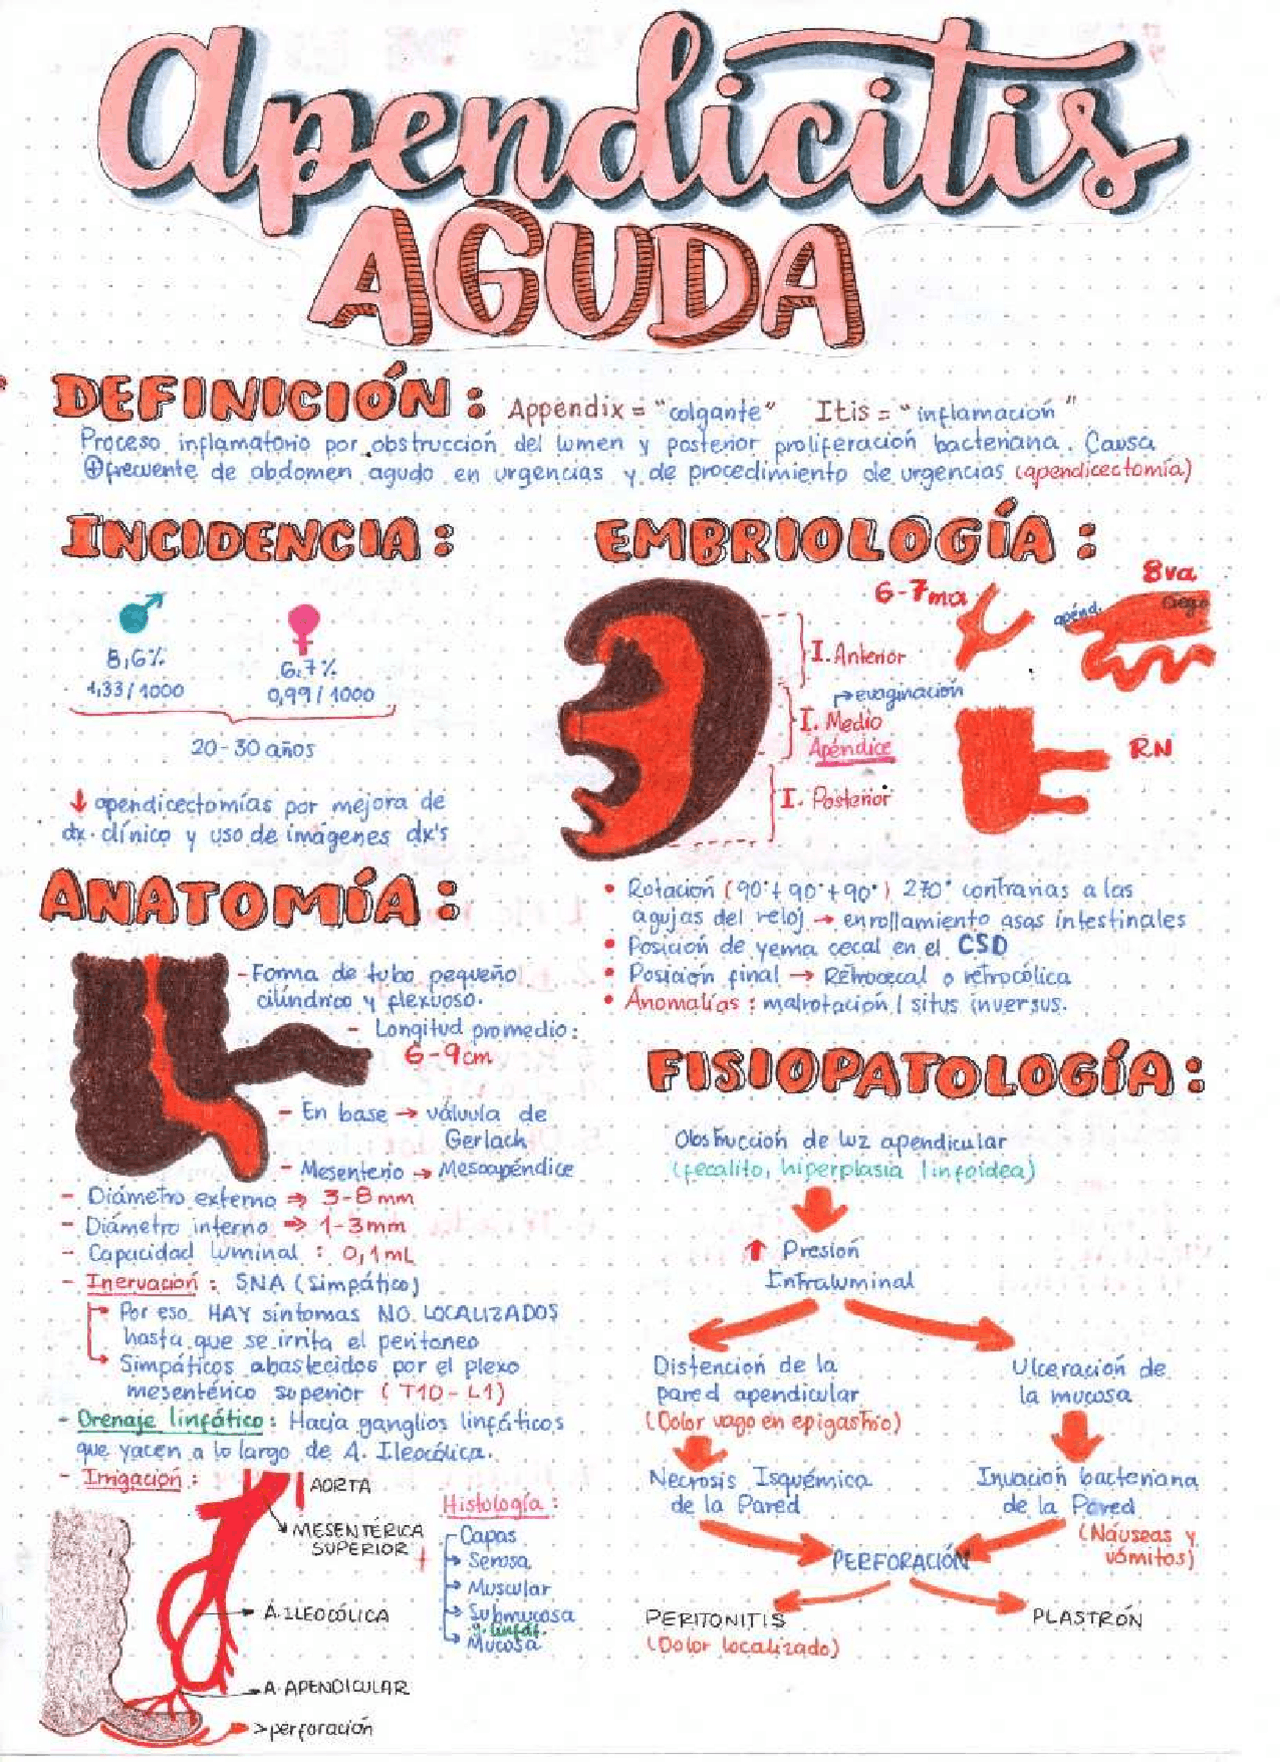 Apendicitis
AGUDA
DEFINICIÓN: Appendix = "colgante" Itis = "inflamación"
Proceso inflamatorio por obstrucción del lumen y posterior proliferación bacteriana. Causa
⊕frecuente de abdomen agudo en urgencias y de procedimiento de urgencias (apendicectomía)
INCIDENCIA:
♂ ♀
8,6% 6,7%
1,33/1000 0,99/1000
20-30 años
↓ apendicectomías por mejora de
dx. clínico y uso de imágenes dx's
EMBRIOLOGÍA:
6-7ma
8va
apénd.
Ciego
I. Anterior
→evaginación
I. Medio
Apéndice
RN
I. Posterior
• Rotación (90°+90°+90°) 270° contrarias a las
agujas del reloj → enrollamiento asas intestinales
• Posición de yema cecal en el CSD
• Posición final → Retrocecal o retrocólica
• Anomalías: malrotación / situs inversus.
ANATOMÍA:
- Forma de tubo pequeño
cilíndrico y flexuoso.
- Longitud promedio:
6-9cm
- En base → válvula de
Gerlach
- Mesenterio → Mesoapéndice
- Diámetro externo ⇒ 3-8mm
- Diámetro interno ⇒ 1-3mm
- Capacidad luminal : 0,1mL
- Inervación: SNA (Simpático)
Por eso HAY síntomas NO LOCALIZADOS
hasta que se irrita el peritoneo
Simpáticos abastecidos por el plexo
mesentérico superior (T10-L1)
- Drenaje linfático: Hacia ganglios linfáticos
que yacen a lo largo de A. Ileocólica.
- Irrigación:
AORTA
MESENTÉRICA
SUPERIOR
A. ILEOCÓLICA
A. APENDICULAR
>perforación
Histología:
Capas
Serosa
Muscular
Submucosa
Mucosa
FISIOPATOLOGÍA:
Obstrucción de luz apendicular
(fecalito, hiperplasia linfoidea)
↑ Presión
Intraluminal
Distención de la
pared apendicular
(Dolor vago en epigastrio)
Ulceración de
la mucosa
Necrosis Isquémica
de la Pared
Invación bacteriana
de la Pared
(Náuseas y
vómitos)
PERFORACIÓN
PERITONITIS
(Dolor localizado)
PLASTRÓN